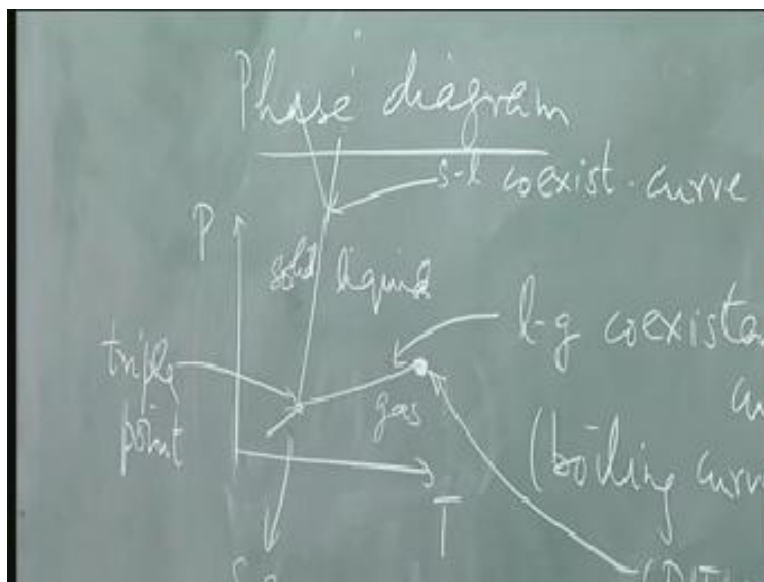 Phase diagram
s-l coexist. curve
P
solid liquid
l-g coexista
triple
point
gas
(boiling curv
T